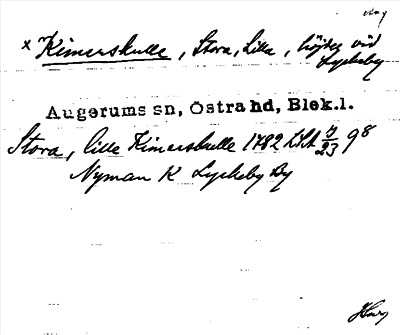 × Kimerskulle, Stora, Lilla, höjder vid
Lyckeby
Augerums sn, Östra hd, Blek.l.
Stora, lille Kimerskulle 1782 LSA 7/23 98
Nyman K Lyckeby By